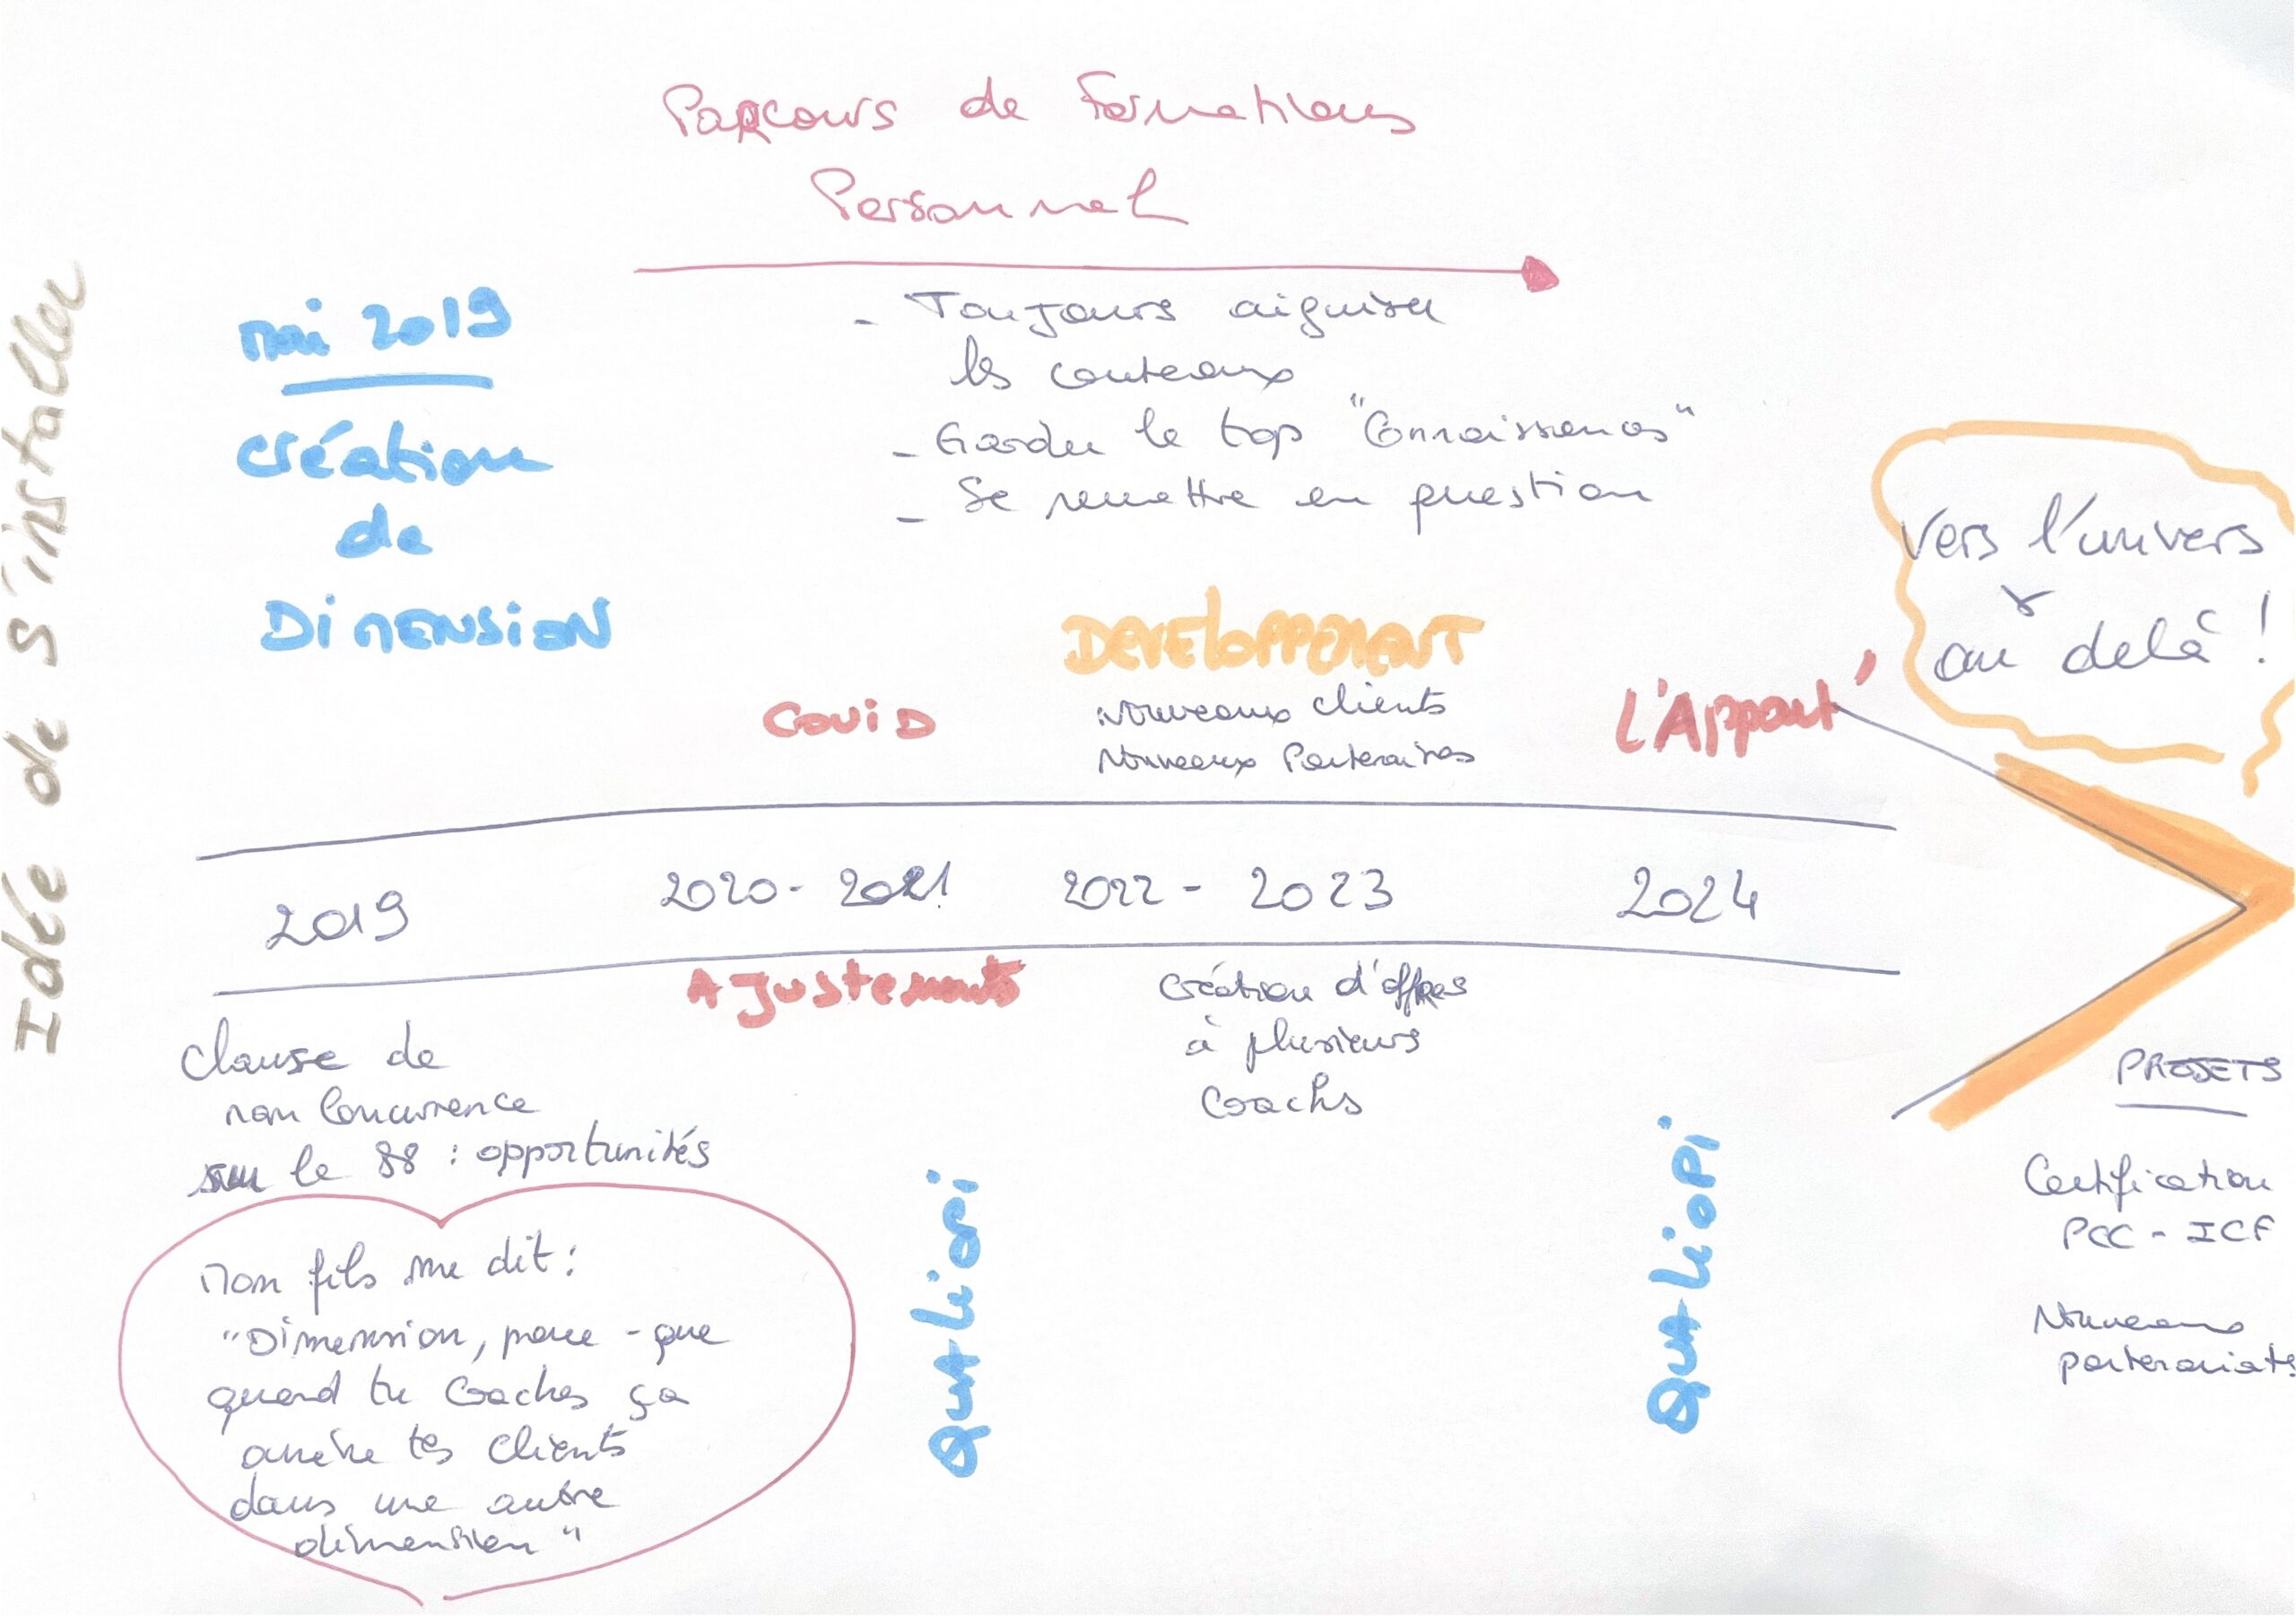 Parcours de Formations
Personnel
Idée de s'installer
mai 2019
Création
de
DIMENSION
- Toujours aiguiser
les couteaux
- Garder le top "Connaissances"
- Se remettre en question
COVID
DEVELOPPEMENT
Nouveaux clients
Nouveaux Partenaires
L'Appart'
Vers l'univers
&
au delà !
2019
2020 - 2021
2022 - 2023
2024
Clause de
non concurrence
sur le 88 : opportunités
Ajustements
Création d'offres
à plusieurs
coachs
Mon fils me dit :
"Dimension, parce-que
quand tu coaches ça
amène tes clients
dans une autre
dimension"
QUALIOPI
QUALIOPI
PROJETS
Certification
PCC - ICF
Nouveaux
partenariats